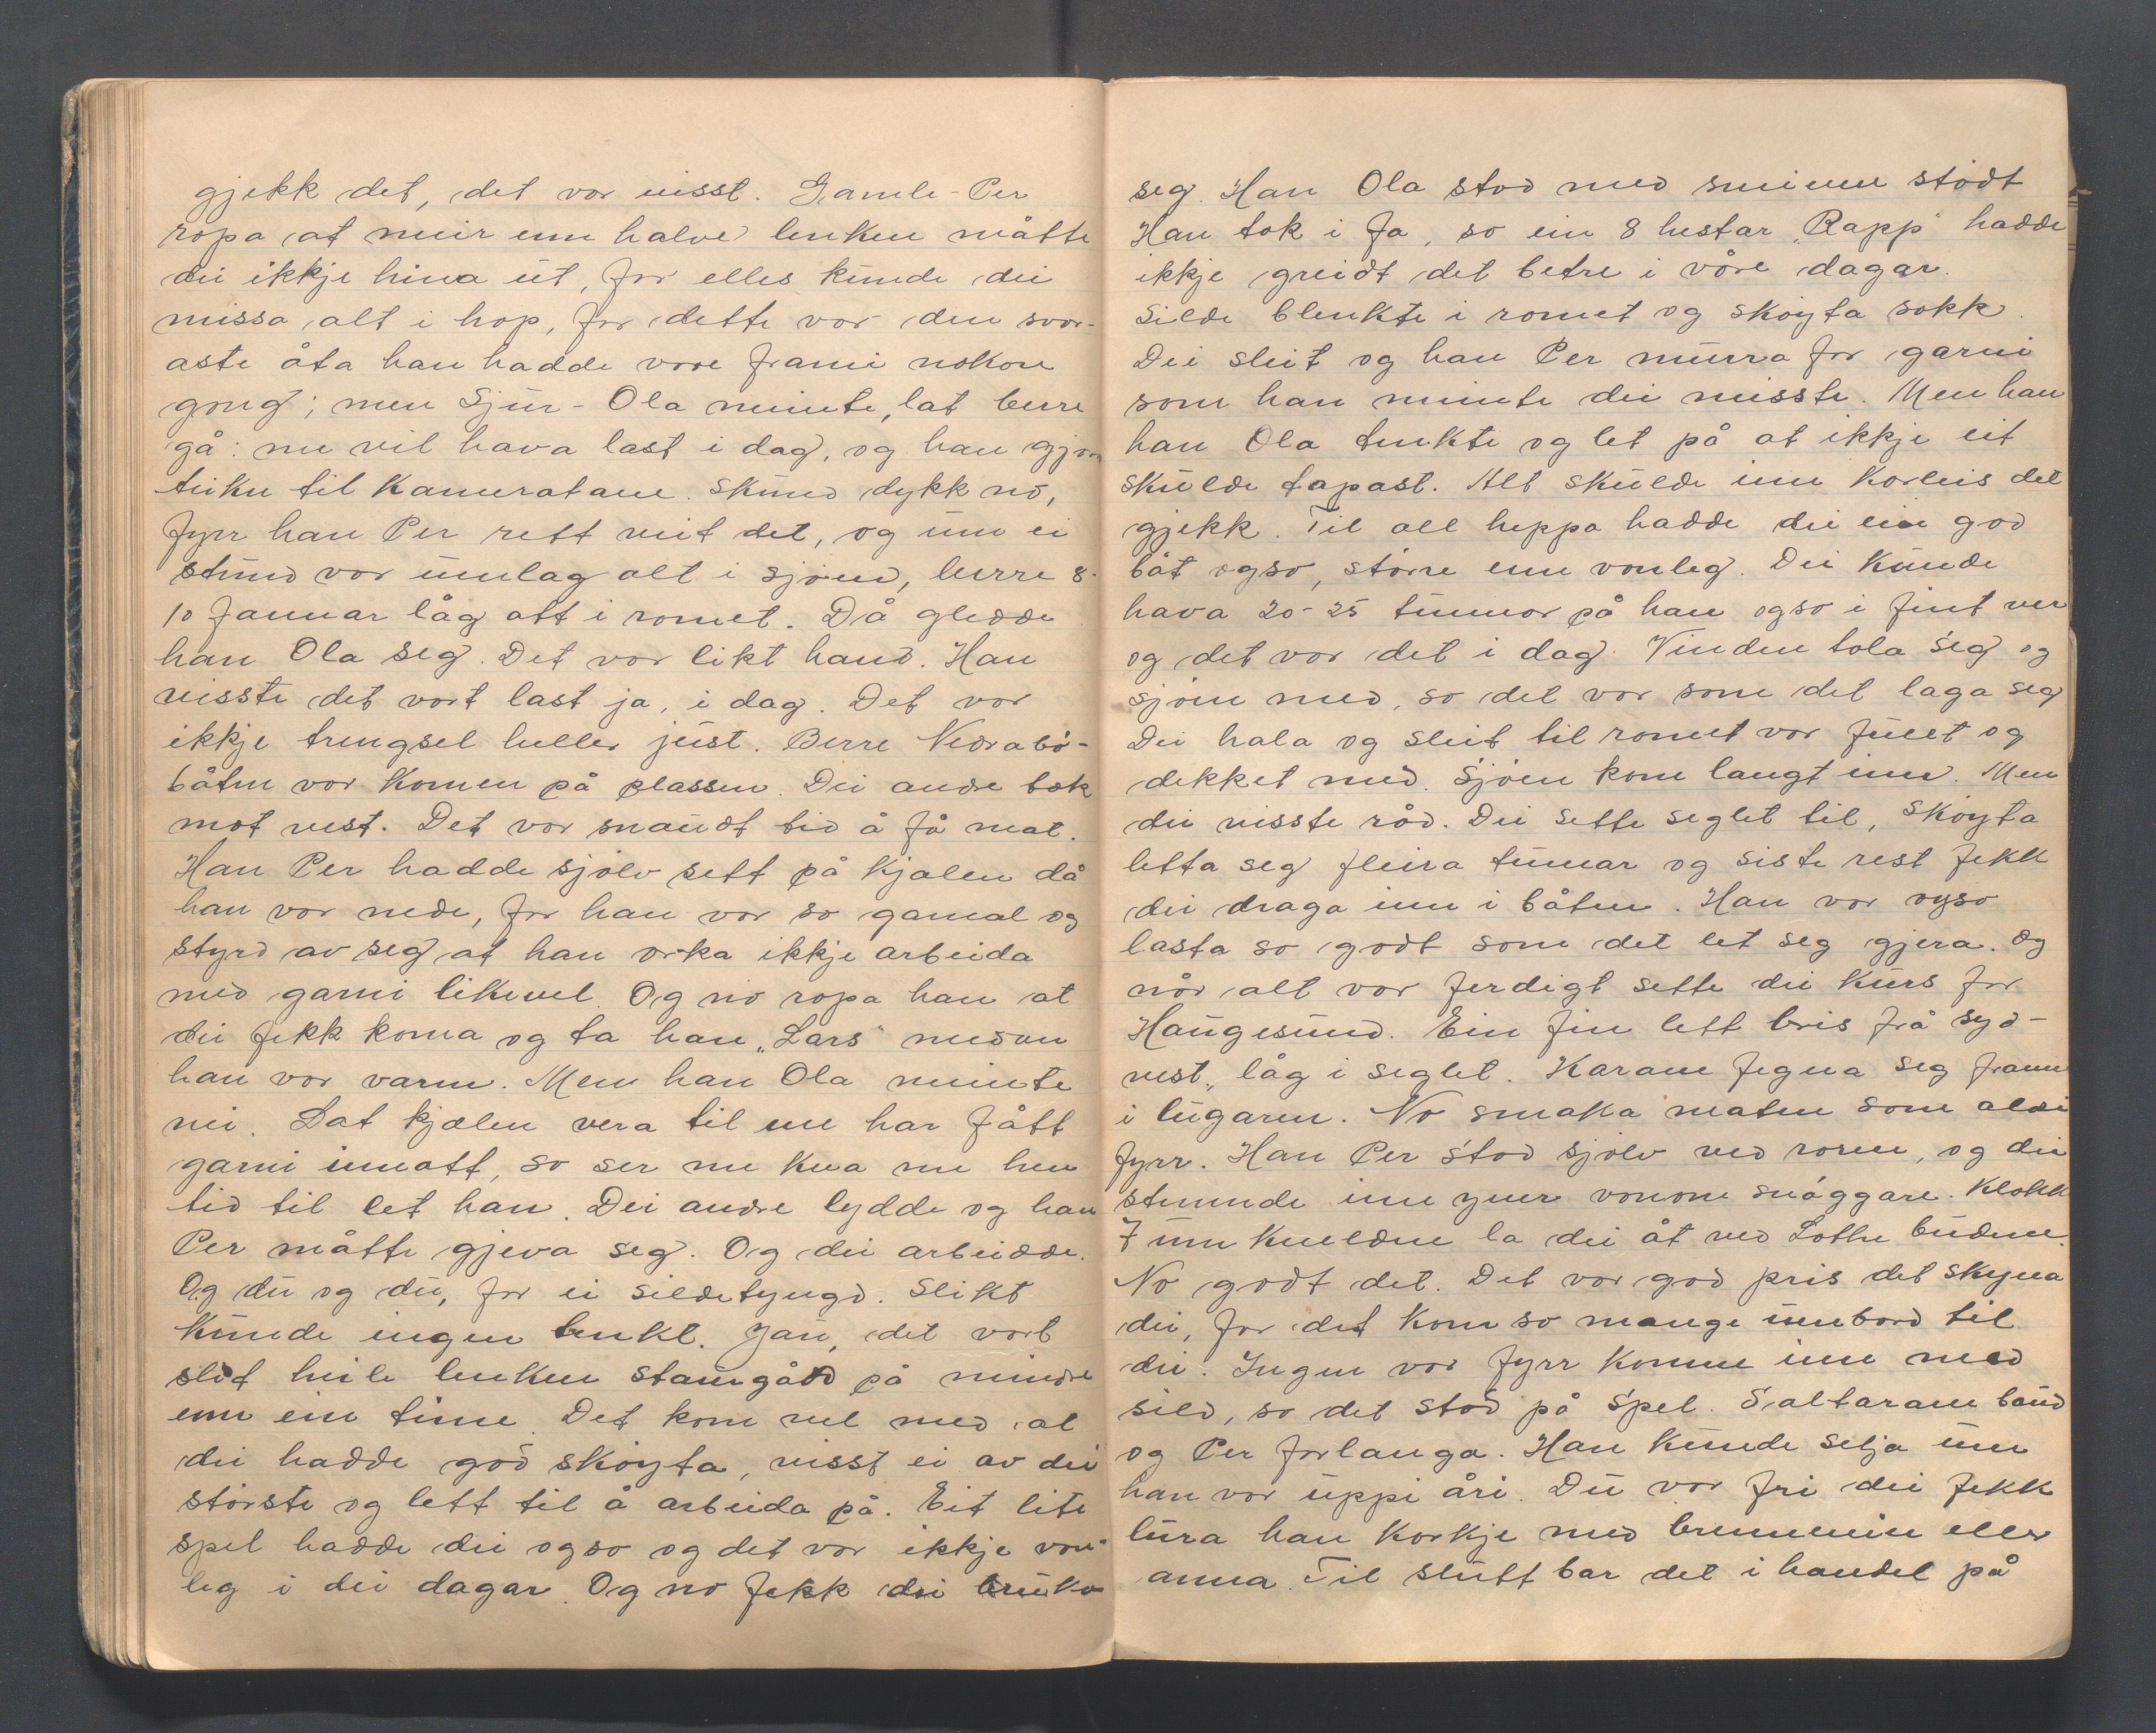 gjekk det, det var visst. Gamle-Per
ropa at meir enn halve lenken måtte
dei ikkje hiva ut, for elles kunde dei
missa alt i hop, for dette var den svær-
aste åta han hadde vore frami nokon
gong; men Sjur-Ola meinte, lat berre
gå: me vil hava last i dag, og han gjor
teikn til kameratane. Skund dykk no,
fyrr han Per rett veit det, og um ei
stund var umlag alt i sjøen, berre 8-
10 famnar låg att i romet. Då gledde
han Ola seg. Det var likt hand. Han
visste det vart last ja, i dag. Det var
ikkje trengsel heller just. Berre Nedrabø-
båten var komen på plassen. Dei andre tok
mot vest. Det var snaudt tid å få mat.
Han Per hadde sjølv sett på kjølen då
han var nede, for han var so gamal og
styrd av seg at han orka ikkje arbeida
med garni likevel. Og no ropa han at
dei fekk koma og ta han „Lars" medan
han var varm. Men han Ola meinte
nei. Lat kjølen vera til me har fått
garni innatt, so ser me kva me hev
tid til let han. Dei andre lydde og han
Per måtte gjeva seg. Og dei arbeidde.
Og du og du, for ei sildetyngd. Slikt
kunde ingen tenkt. Jau, det vart
slit heile lenken staurgård på mindre
enn ein time. Det kom vel med at
dei hadde god skøyta, visst ei av dei
største og lett til å arbeida på. Eit lite
spel hadde dei ogso og det var ikkje van-
leg i dei dagar. Og no fekk dei bruka
seg. Han Ola stod med sveiven stødt
Han tok i fa, so ein 8 hestar „Rapp" hadde
ikkje greidt det betre i våre dagar.
Silde blenkte i romet og skøyta sokk.
Dei sleit og han Per murra for garni
som han meinte dei misste. Men han
han Ola tenkte og let på at ikkje eit
skulde tapast. Alt skulde inn korleis det
gjekk. Til all heppa hadde dei ein god
båt ogso, større enn vanleg. Dei kunde
hava 20-25 tunnor på han ogso i fint ver
og det var det i dag. Vinden tola seg og
sjøen med, so det var som det laga seg
Dei hala og sleit til romet var fullt og
dekket med. Sjøen kom langt inn. Men
dei visste råd. Dei sette seglet til, skøyta
letta seg fleira tumar og siste rest fekk
dei draga inn i båten. Han var ogso
lasta so godt som det let seg gjera. Og
når alt var ferdigt sette dei kurs for
Haugesund. Ein fin lett bris frå syd-
vest, låg i seglet. Karane fegna seg framm
i lugaren. No smaka maten som aldri
fyrr. Han Per stod sjølv ved roren, og dei
stemnde inn yver vonom snøggare. Klokk
7 um kvelden la dei åt ved Lothe budene.
No godt det. Det var god pris det skyna
dei, for det kom so mange umbord til
dei. Ingen var fyrr komne inn med
sild, so det stod på spel. Saltarane baud
og Per forlanga. Han kunde selja um
han var uppi åri. Du var fri dei fekk
lura han korkje med brennevin eller
anna. Til slutt bar det i handel på